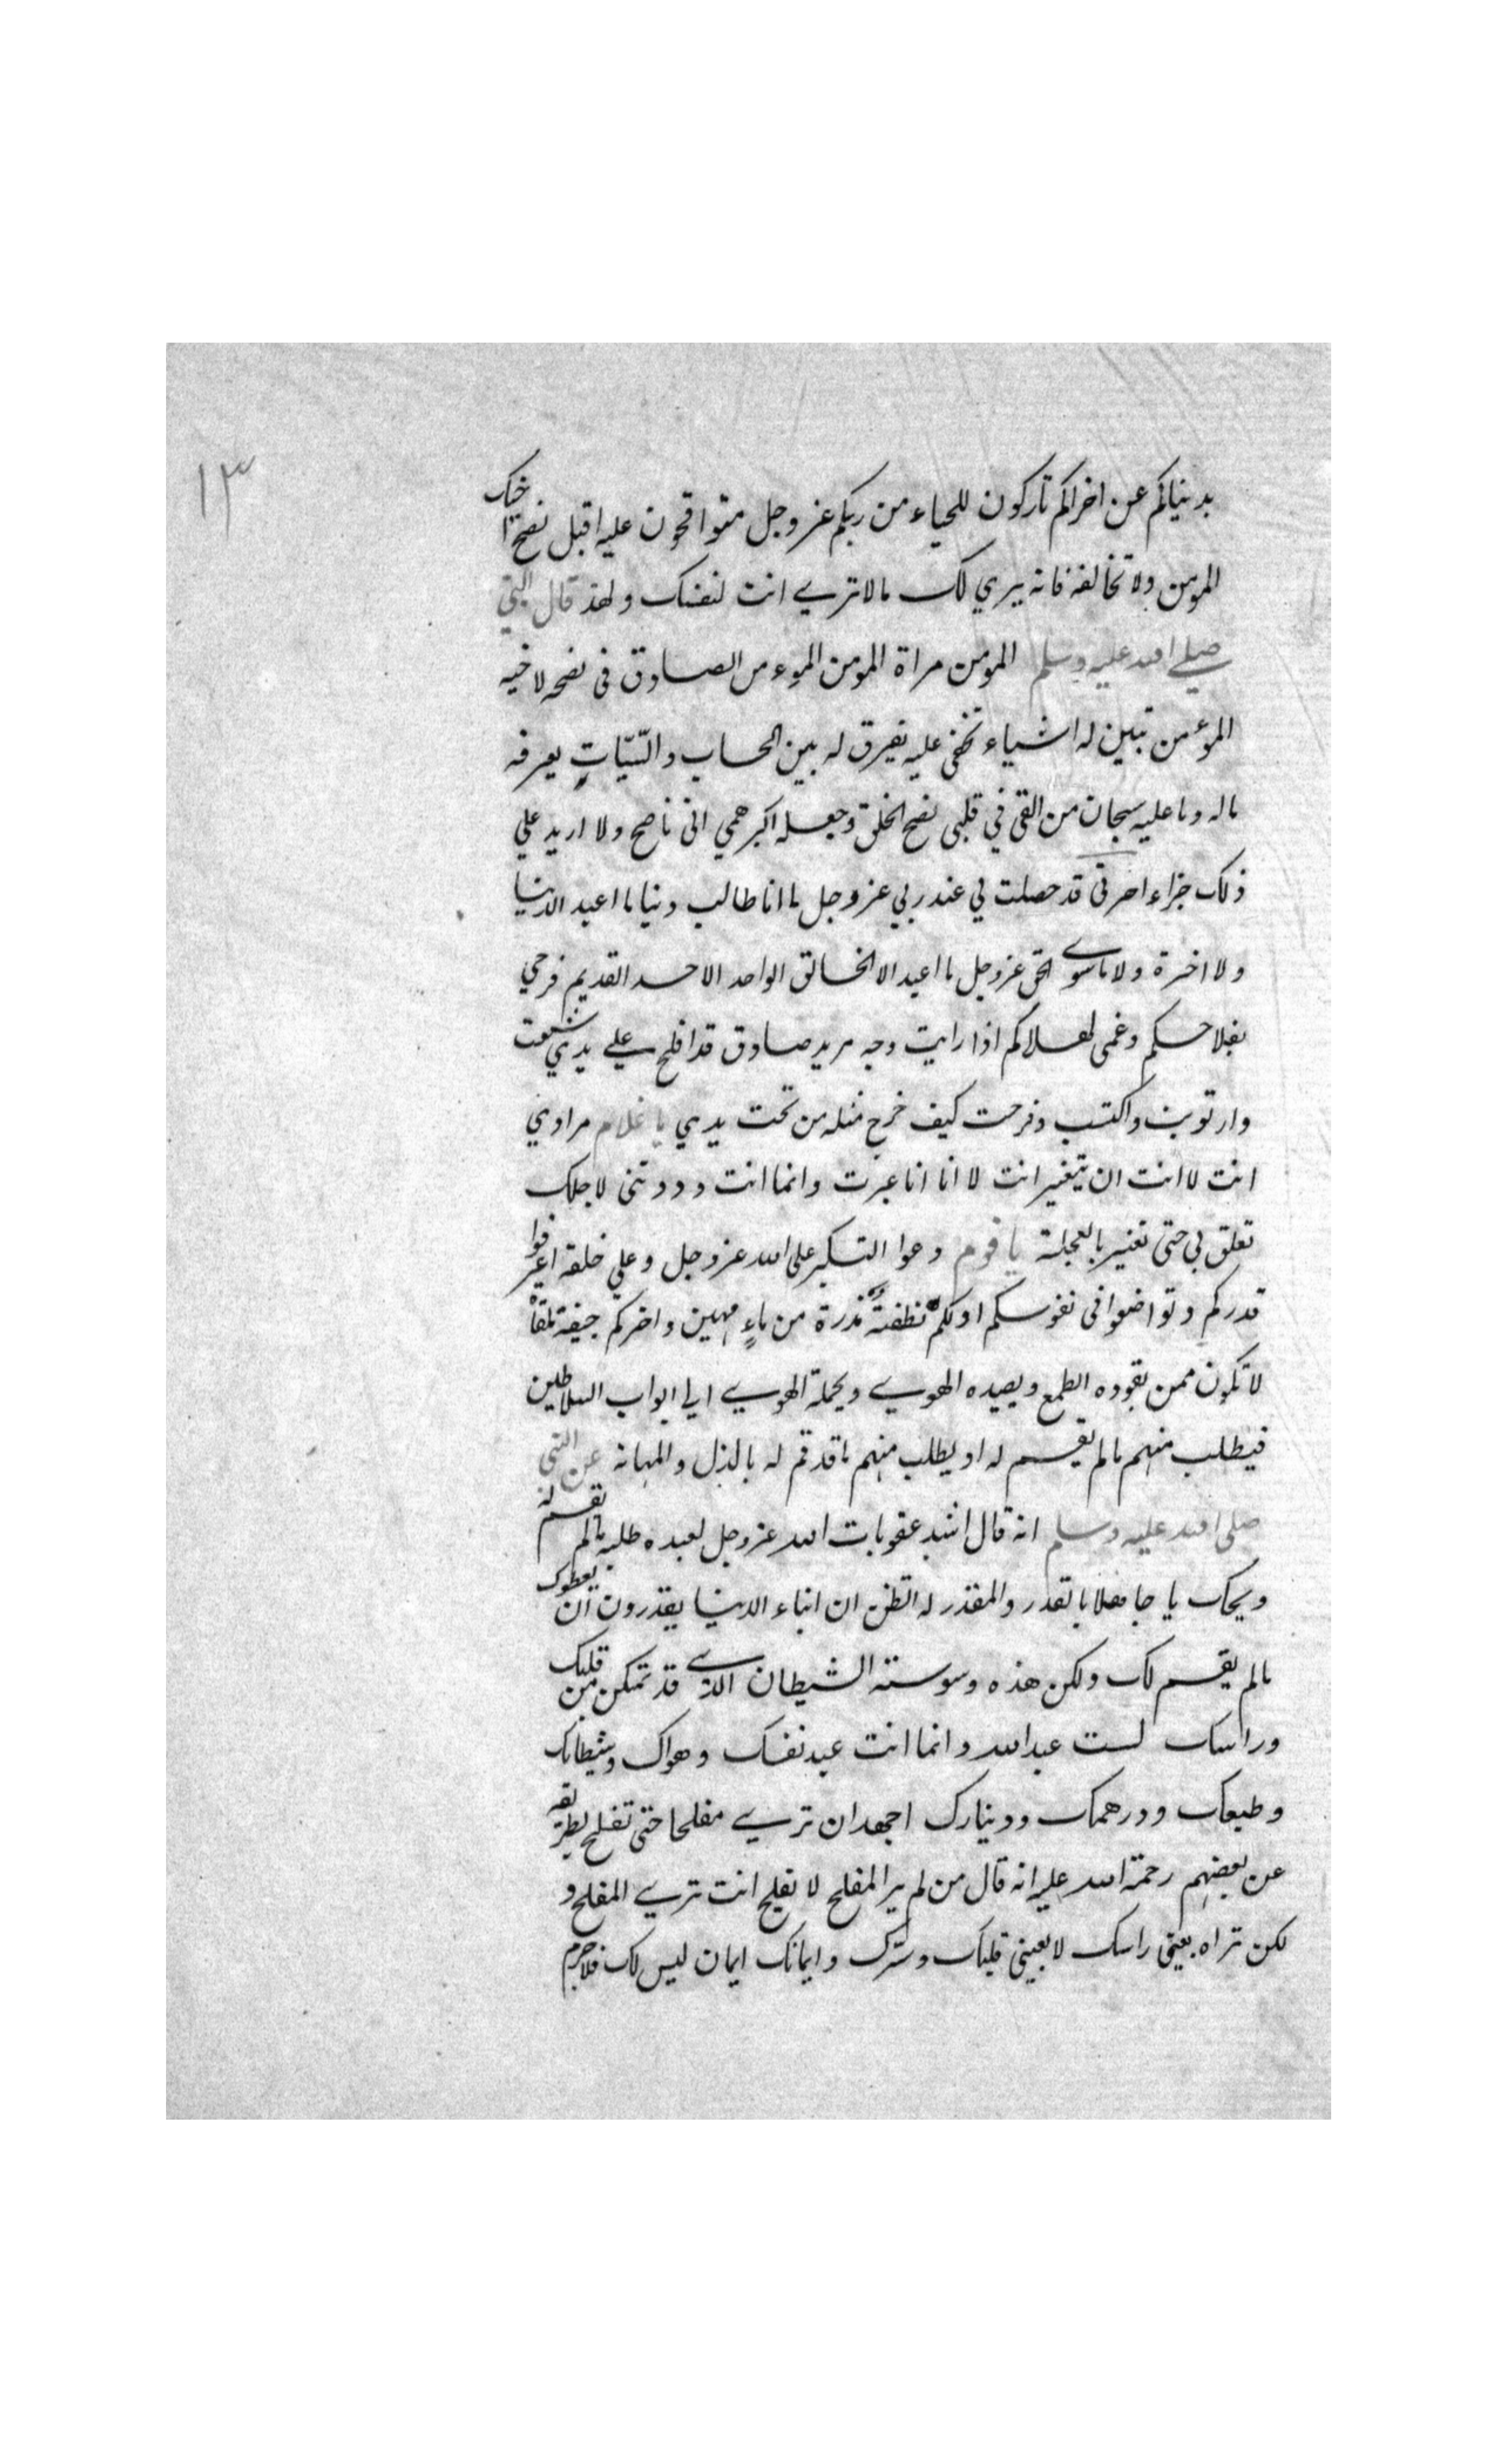 ١٣
بدنياكم عن اخراكم تاركون للحياء من ربكم عز وجل متواقحون عليه اقبل نصح اخيك
المومن ولا تخالفه فانه يري لك مالا تري انت لنفسك ولهذ قال النبي
صلي الله عليه وسلم المومن مراة المومن المومن الصادق في نصحه لاخيه
المؤمن تبين له اشياء تخفى عليه يفرق له بين الحساب والسّيّاتِ يعرفه
ماله وما عليه سبحان من القى في قلبي نصح الخلق وجعله اكبر همي اني ناصح ولا اريد علي
ذلك جزاء اخرتي قد حصلت لي عند ربي عز وجل ما انا طالب دنيا ما اعبد الدنيا
ولا اخرة ولا ماسوي الحق عز وجل ما اعبد الا الخالق الواحد الاحد القديم فرحي
بفلاحكم وغمي لهلاكم اذا رايت وجه مريد صادق قد افلح علي يدي شبعت
وارتويت واكتسب وفرحت كيف خرج مثله من تحت يدي يا غلام مرادي
انت لا انت ان يتغير انت لا انا انا عبرت وانما انت وددتني لاجلك
تعلق بي حتى تغير بالعجلة يا قوم دعوا التكبر على الله عز وجل وعلي خلقه اعرفوا
قدركم وتواضعوا في نفوسكم اولكم نطفة مذرة من ماءٍ مهين واخركم جيفة ملقاة
لا تكون ممن يقوده الطمع ويصيده الهوي ويحمله الهوي الي ابواب السلاطين
فيطلب منهم مالم يقسم له او يطلب منهم ما قد قسم له بالذل والمهانة عن النبي
صلى الله عليه وسلم انه قال اشد عقوبات الله عز وجل لعبده طلبه مالم يقسم له
ويحك يا جاهلا بالقدر والمقدر له اتظن ان ابناء الدنيا يقدرون ان يعطوك
مالم يقسم لك ولكن هذه وسوسة الشيطان الذي قد تمكن من قلبك
وراسك لست عبد الله وانما انت عبد نفسك وهواك وشيطانك
وطبعك ودرهمك ودينارك اجهد ان تري مفلحا حتى تفلح بطريقه
عن بعضهم رحمة الله عليه انه قال من لم ير المفلح لا يفلح انت تري المفلح و
لكن تراه بعيني راسك لا بعيني قلبك وسرك وايمانك ايمان ليس لك فلاجرم